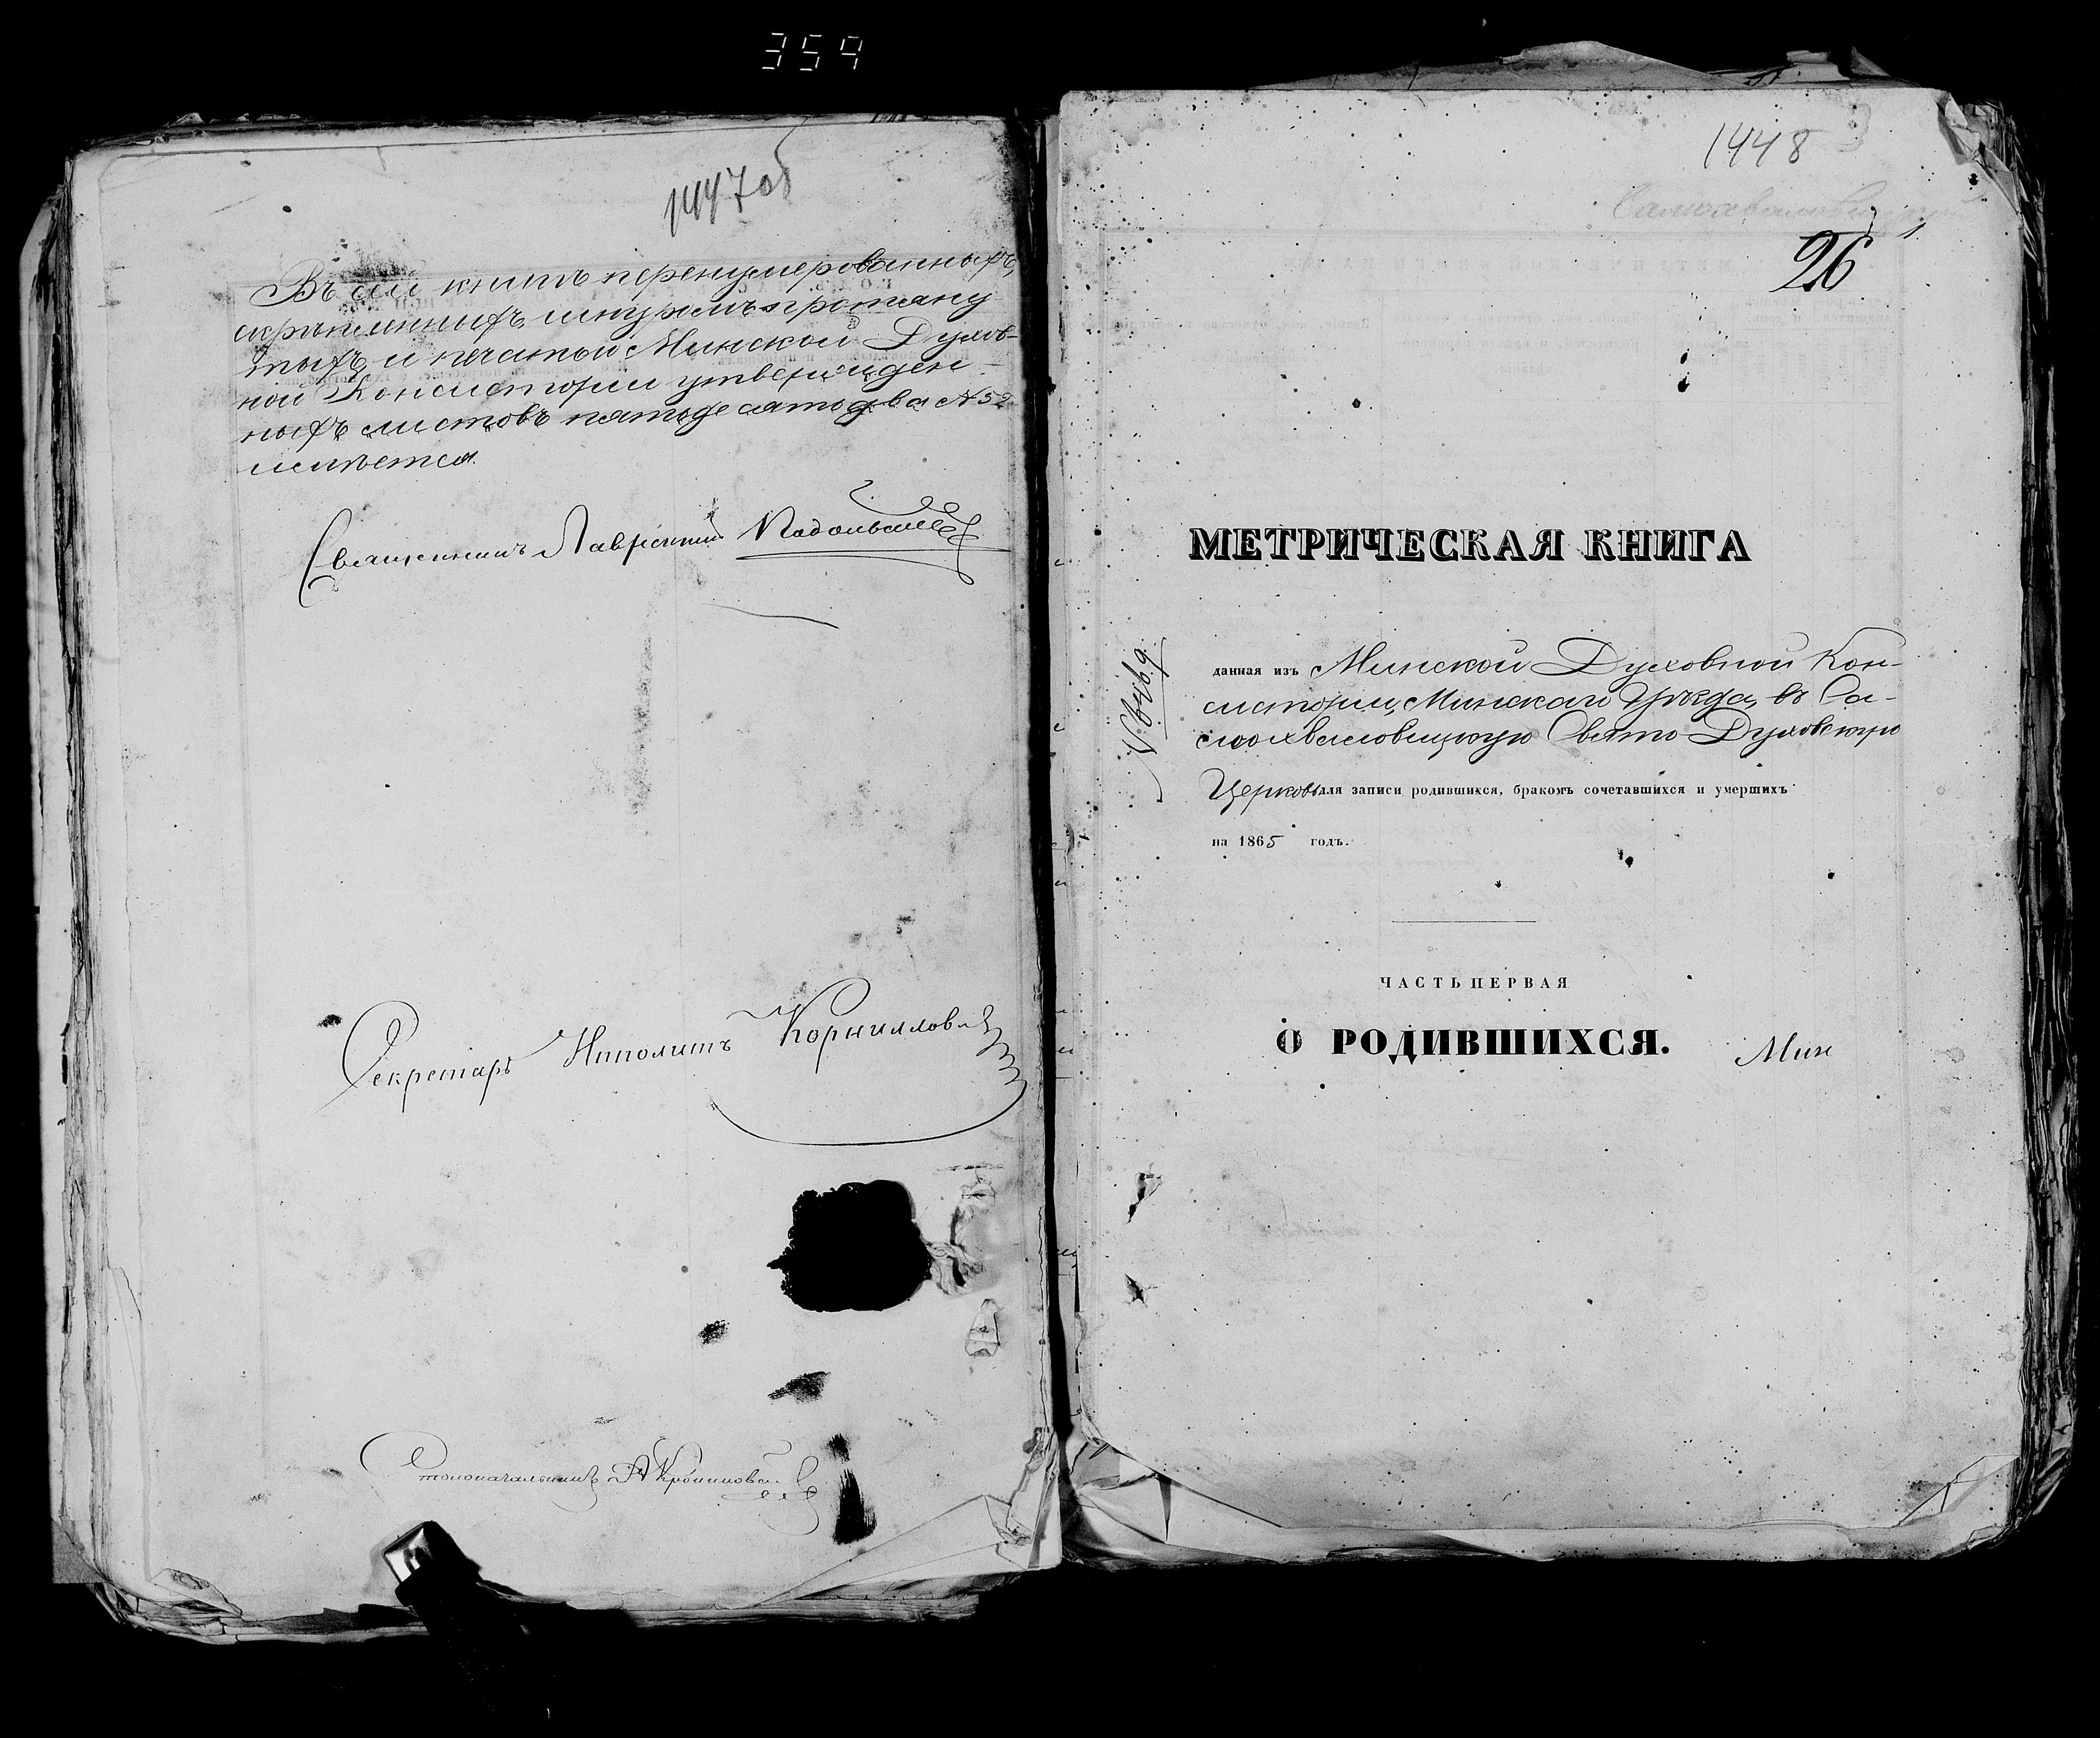 359
1447об
Въ сей книгѣ перенумерованныхъ,
скрѣпленныхъ, шнуромъ протяну
тыхъ и печатью Минской Духов-
ной Консисторіи утвержден-
ныхъ листовъ пятьдесятъ два № 52
имѣется.
Священникъ Лаврентій
Секретарь Ипполитъ Корниллов
Столоначальникъ
1448
26
МЕТРИЧЕСКАЯ КНИГА
данная изъ Минской Духовной Кон-
систоріи, Минскаго Уѣзда, въ Са-
мохваловицкую Свято-Духовскую
Церковь для записи родившихся, бракомъ сочетавшихся и умершихъ
на 1865 годъ.
ЧАСТЬ ПЕРВАЯ
О РОДИВШИХСЯ.
Мин